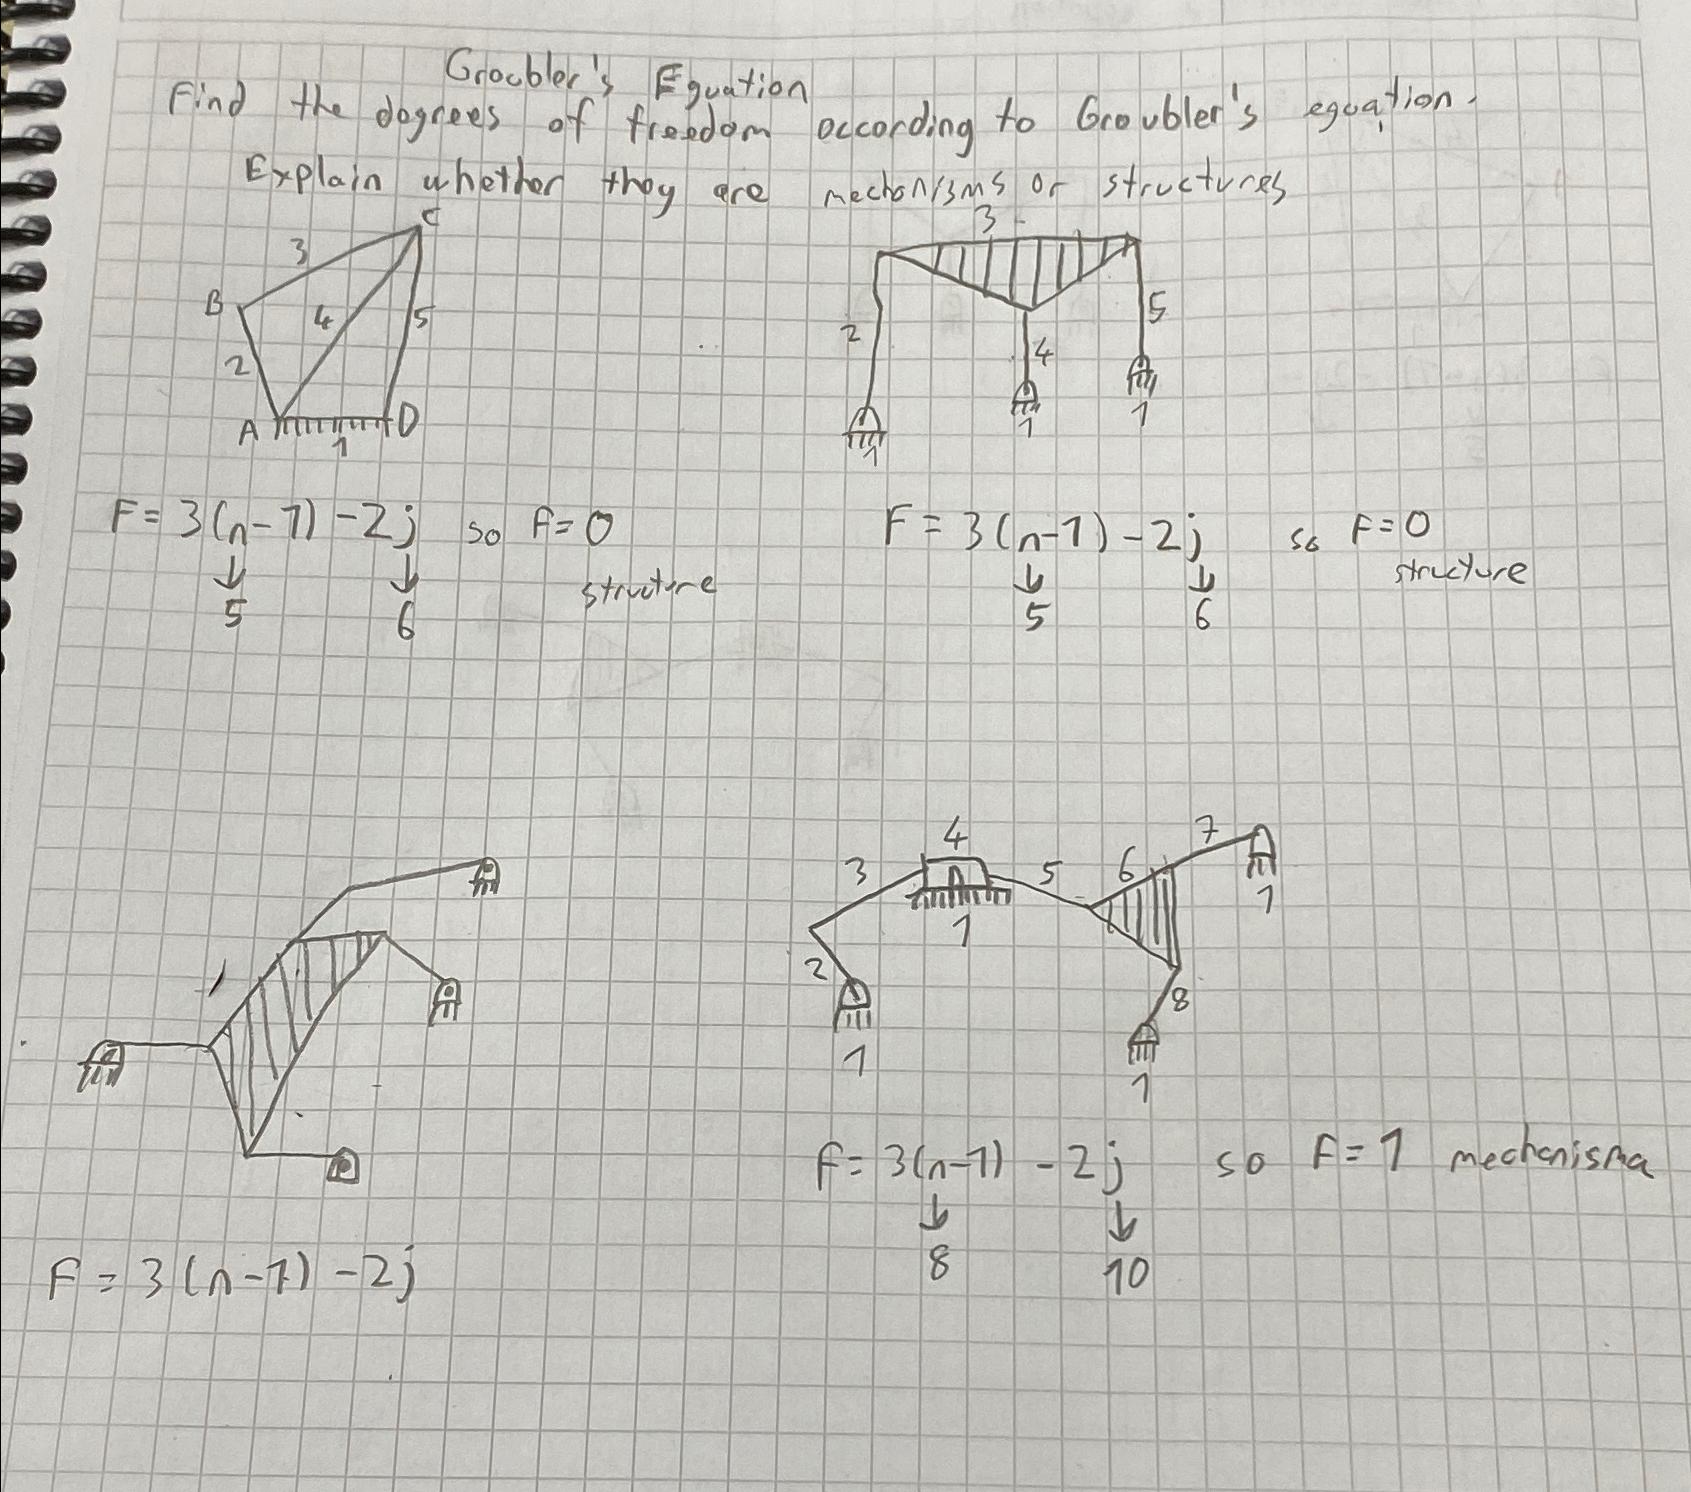 Groubler's Equation
Find the degrees of freedom according to Groubler's equation.
Explain whether they are mechanisms or structures
C
3
B
4
5
2
A
D
1
3
2
5
4
1
1
1
F = 3(n-1) - 2j so F = 0
structure
5
6
F = 3(n-1) - 2j so F = 0
structure
5
6
F = 3(n-1) - 2j
4
3
5
6
7
1
1
2
8
1
1
F = 3(n-1) - 2j so F = 1 mechanisma
8
10